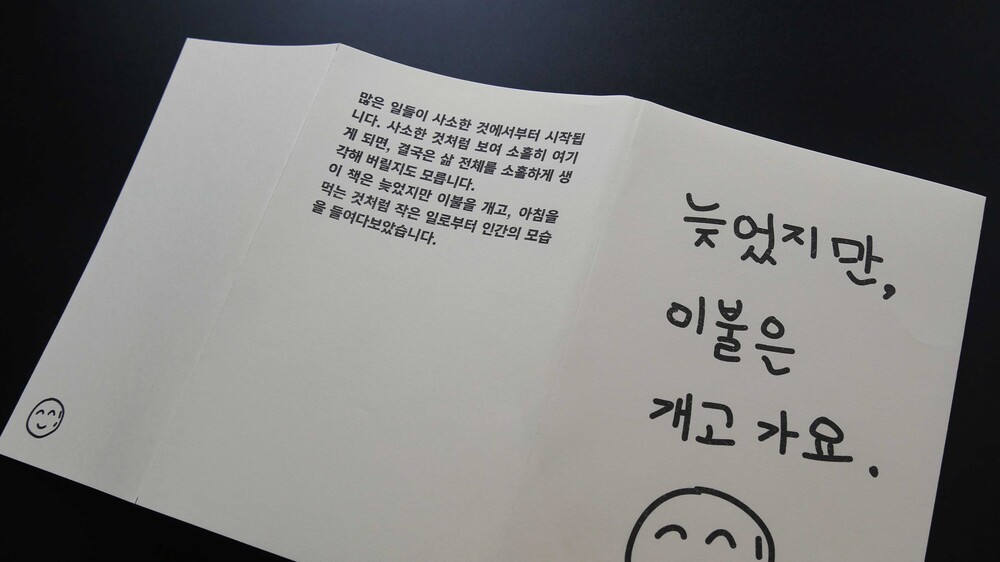 많은 일들이 사소한 것에서부터 시작됩
니다. 사소한 것처럼 보여 소홀히 여기
게 되면, 결국은 삶 전체를 소홀하게 생
각해 버릴지도 모릅니다.
이 책은 늦었지만 이불을 개고, 아침을
먹는 것처럼 작은 일로부터 인간의 모습
을 들여다보았습니다.
늦었지만,
이불은
개고 가요.